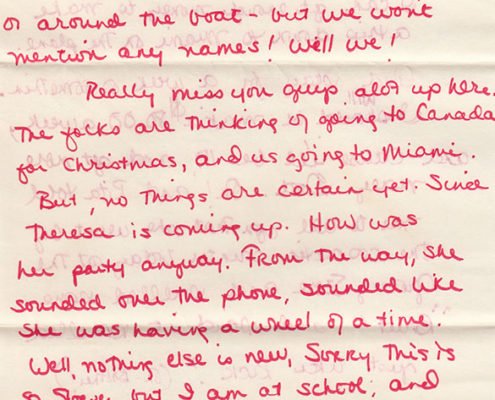 or around the boat - but we wont
mention any names! Well we!
Really miss you guys alot up here.
The folks are thinking of going to Canada
for Christmas, and us going to Miami.
But, no things are certain yet. Since
Theresa is coming up. How was
her party anyway. From the way, she
sounded over the phone, sounded like
she was having a wheel of a time.
Well, nothing else is new, Sorry this is
so but I am at school, and